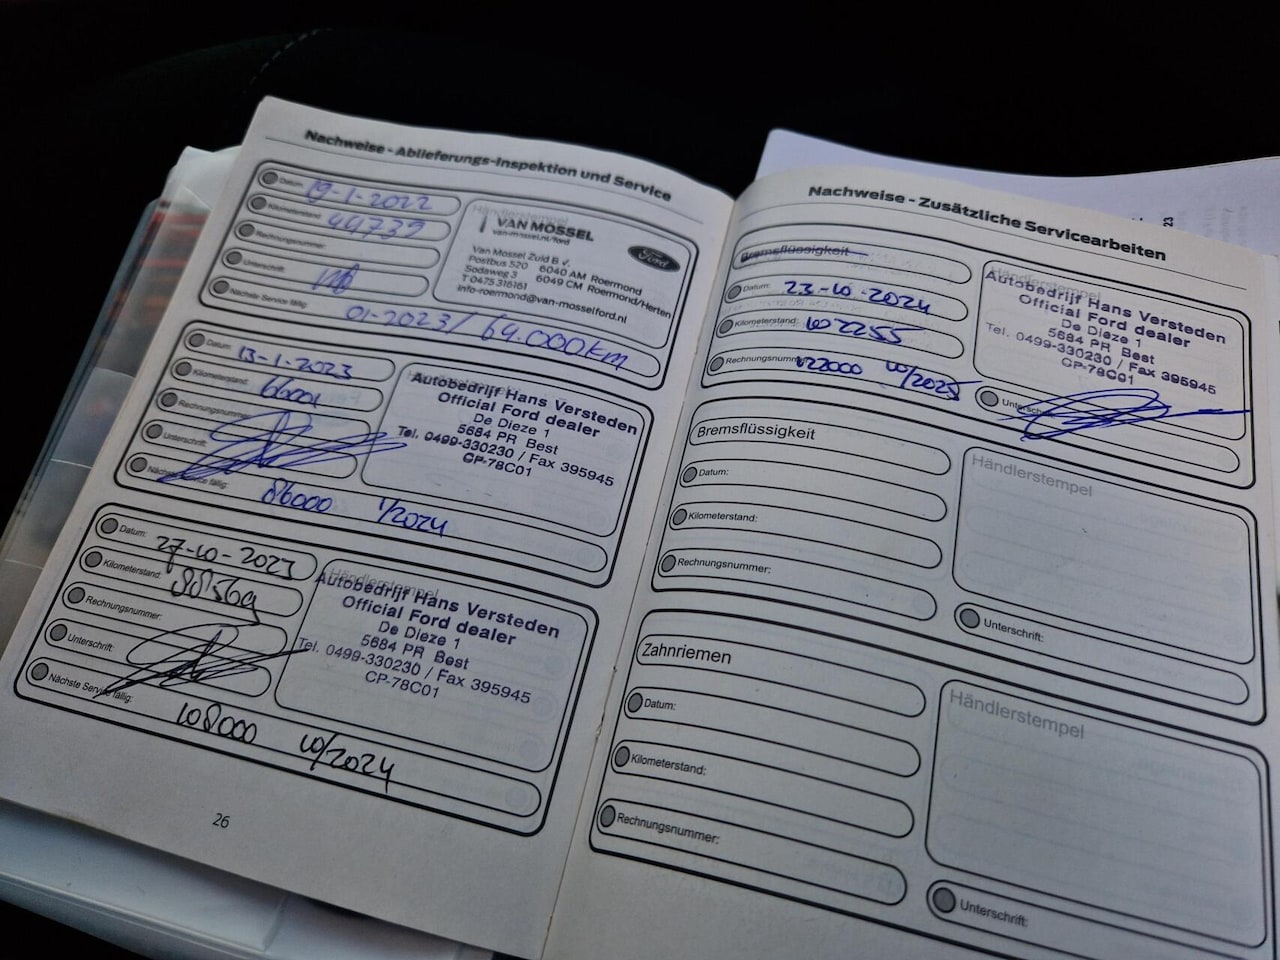 Nachweise - Ablieferungs-Inspektion und Service
Datum: 19-1-2022
Kilometerstand: 44739
Rechnungsnummer:
Unterschrift:
Nächste Service fällig: 01-2023 / 64.000km
Händlerstempel
VAN MOSSEL
van-mossel.nl/ford
Ford
Van Mossel Zuid B.V.
Postbus 520 6040 AM Roermond
Sodaweg 3 6049 CM Roermond/Herten
T 0475 316161
info-roermond@van-mosselford.nl
Datum: 13-1-2023
Kilometerstand: 66001
Rechnungsnummer:
Unterschrift:
Nächste Service fällig: 86000 1/2024
Autobedrijf Hans Versteden
Official Ford dealer
De Dieze 1
5684 PR Best
Tel. 0499-330230 / Fax 395945
CP-78C01
Datum: 27-10-2023
Kilometerstand: 88569
Rechnungsnummer:
Unterschrift:
Nächste Service fällig:
108000 10/2024
Händlerstempel
Autobedrijf Hans Versteden
Official Ford dealer
De Dieze 1
5684 PR Best
Tel. 0499-330230 / Fax 395945
CP-78C01
26
Nachweise - Zusätzliche Servicearbeiten
Bremsflüssigkeit
Datum: 23-10-2024
Kilometerstand: 102255
Rechnungsnummer: 122000 10/2025
Händlerstempel
Autobedrijf Hans Versteden
Official Ford dealer
De Dieze 1
5684 PR Best
Tel. 0499-330230 / Fax 395945
CP-78C01
Bremsflüssigkeit
Datum:
Kilometerstand:
Rechnungsnummer:
Händlerstempel
Unterschrift:
Zahnriemen
Datum:
Kilometerstand:
Rechnungsnummer:
Händlerstempel
Unterschrift: